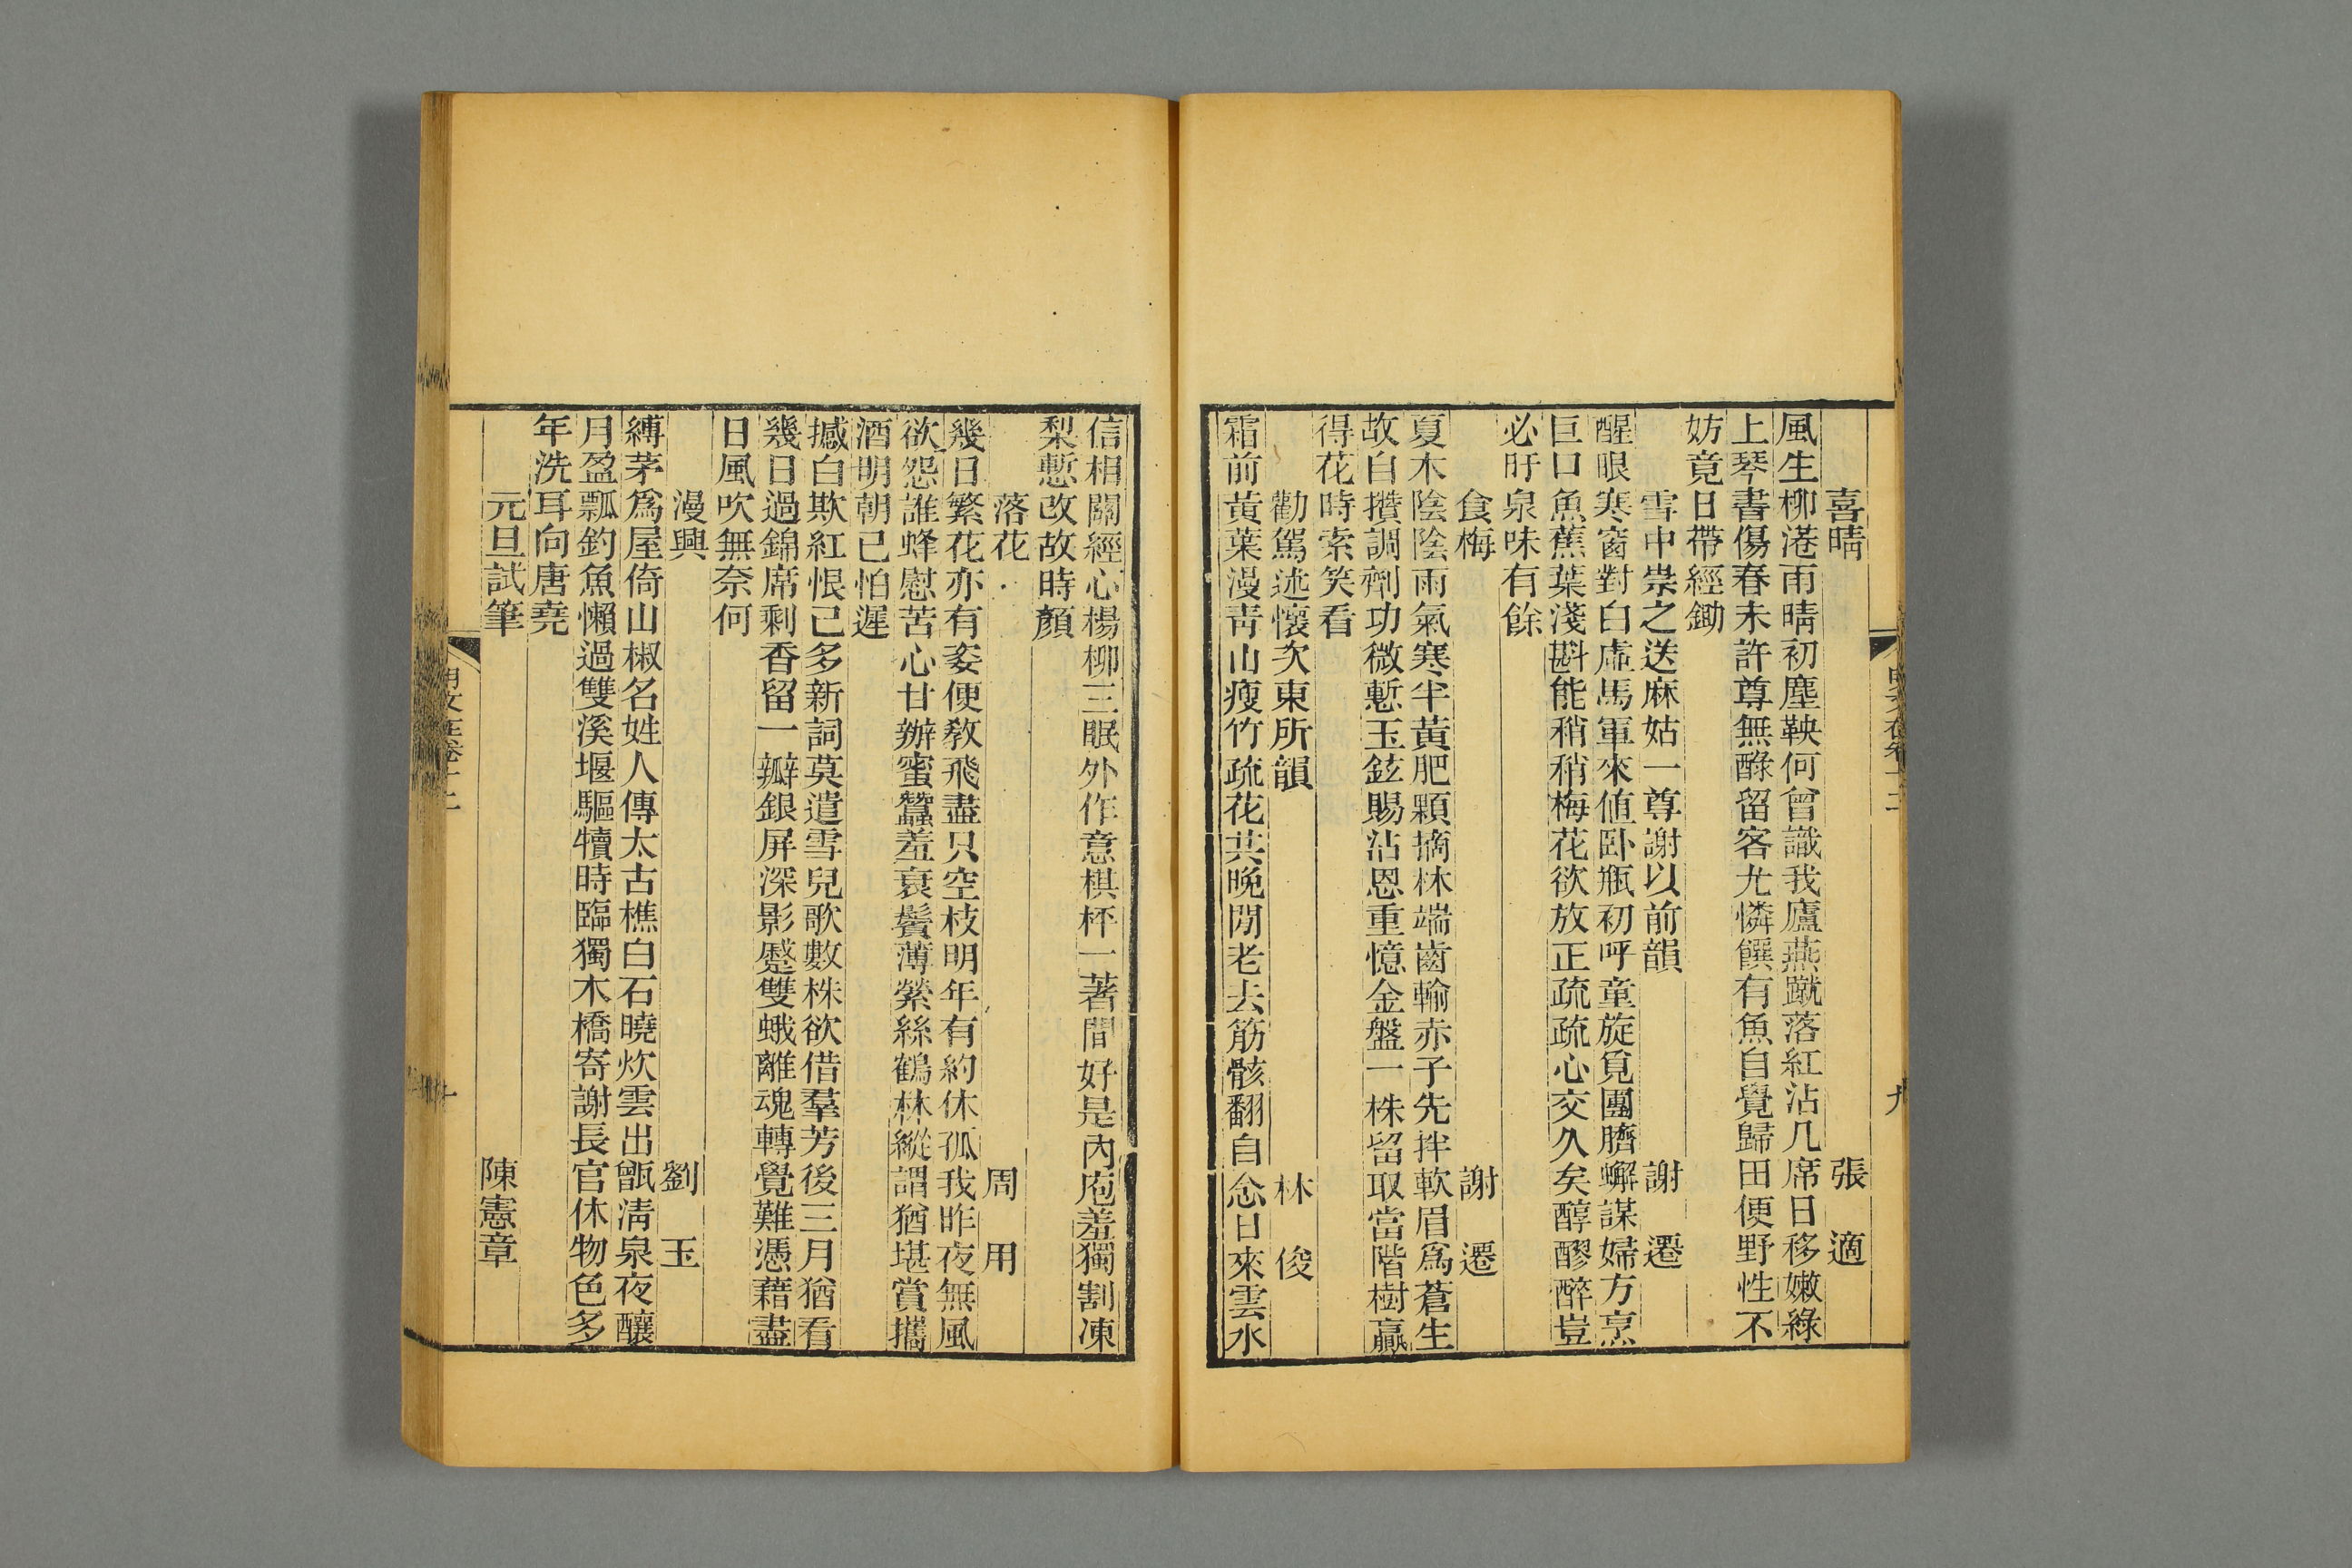 喜晴　張適
風生柳港雨晴初塵鞅何曾識我廬燕蹴落紅沾几席日移嫩綠
上琴書傷春未許尊無醁留客尤憐饌有魚自覺歸田便野性不
妨竟日帶經鋤
雪中祟之送麻姑一尊謝以前韻　謝遷
醒眼寒窗對白虛馬軍來值卧瓶初呼童旋覓團臍蠏謀婦方烹
巨口魚蕉葉淺斟能稍稍梅花欲放正疏疏心交久矣醇醪醉豈
必盱泉味有餘
食梅　謝遷
夏木陰陰雨氣寒半黃肥顆摘林端齒輸赤子先拌軟眉爲蒼生
故自攢調劑功微慙玉鉉賜沾恩重憶金盤一株留取當階樹贏
得花時索笑看
勸駕述懷次東所韻　林俊
霜前黃葉漫靑山瘦竹疏花共晚閒老去筋骸翻自念日來雲水
信相關經心楊柳三眠外作意棋枰一著間好是內庖羞獨割凍
梨慙改故時顏
落花　周用
幾日繁花亦有姿便教飛盡只空枝明年有約休孤我昨夜無風
欲怨誰蜂慰苦心甘辦蜜蠶羞衰鬢薄縈絲鶴林縱謂猶堪賞攜
酒明朝已怕遲
撼白欺紅恨已多新詞莫遣雪兒歌數株欲借羣芳後三月猶看
幾日過錦席剩香留一瓣銀屏深影蹙雙蛾離魂轉覺難憑藉盡
日風吹無奈何
漫興　劉玉
縛茅爲屋倚山椒名姓人傳太古樵白石曉炊雲出甑淸泉夜釀
月盈瓢釣魚懶過雙溪堰驅犢時臨獨木橋寄謝長官休物色多
年洗耳向唐堯
元旦試筆　陳憲章